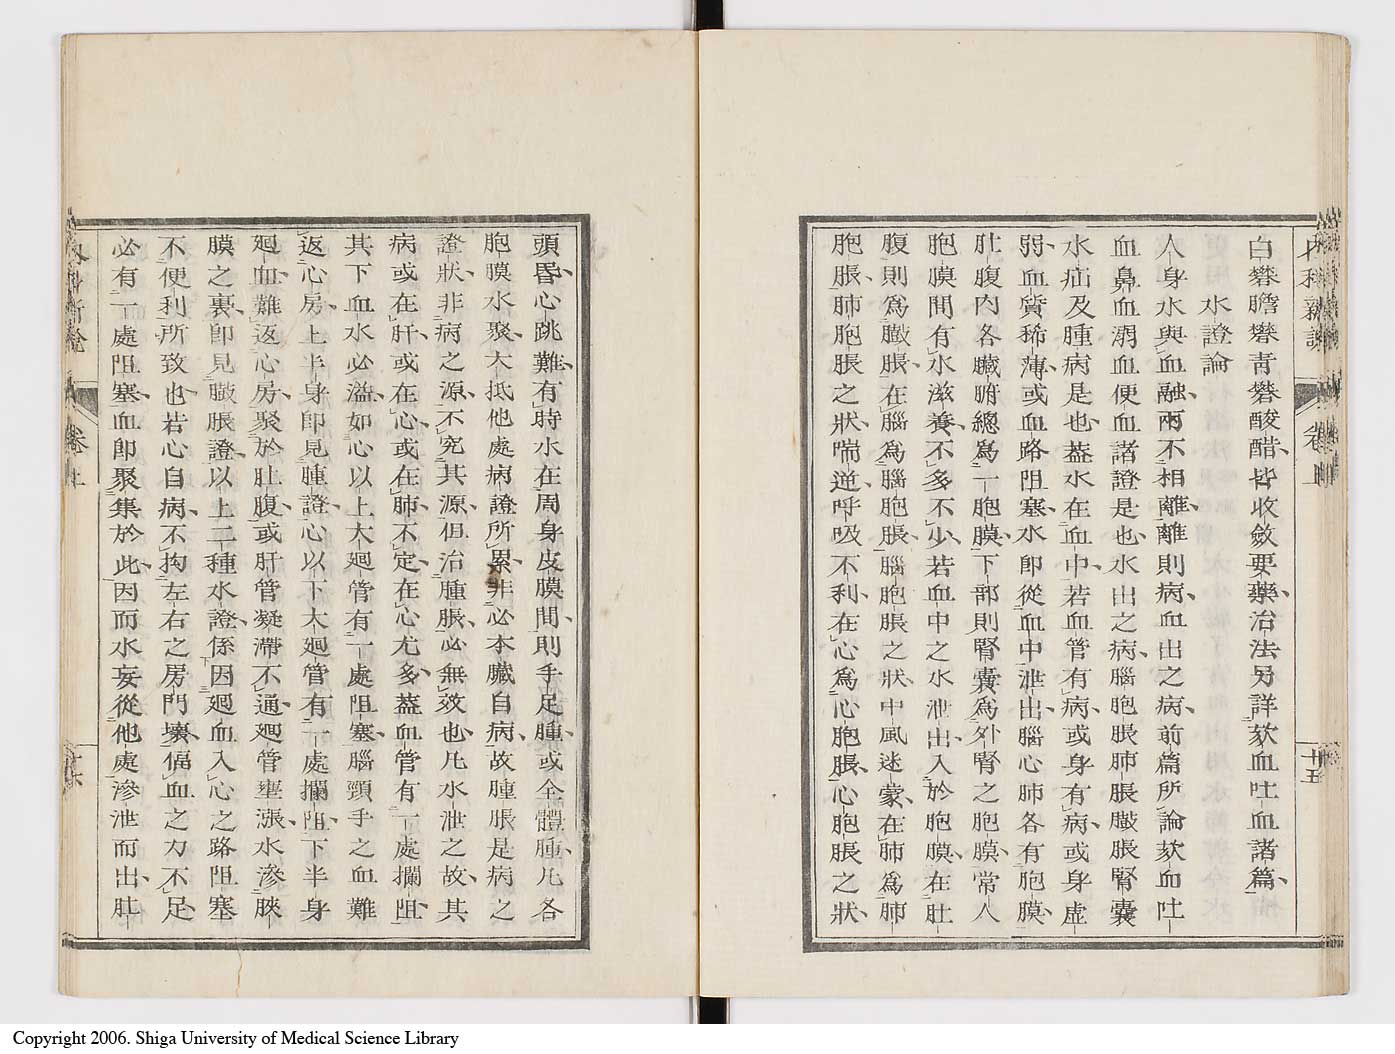 內科新說
卷上
十五
白礬膽礬青礬酸醋皆收斂要藥治法另詳欬血吐血諸篇
水證論
人身水與血融兩不相離離則病血出之病前篇所論欬血吐
血鼻血溺血便血諸證是也水出之病腦胞脹肺脹臌脹腎囊
水疝及腫病是也蓋水在血中若血管有病或身有病或身虛
弱血質稀薄或血路阻塞水即從血中泄出腦心肺各有胞膜
肚腹內各臟腑總爲一胞膜下部則腎囊爲外腎之胞膜常人
胞膜間有水滋養不多不少若血中之水泄出入於胞膜在肚
腹則爲臌脹在腦爲腦胞脹腦胞脹之狀中風迷蒙在肺爲肺
胞脹肺胞脹之狀喘逆呼吸不利在心爲心胞脹心胞脹之狀
頭昏心跳難有時水在周身皮膜間則手足腫或全體腫凡各
胞膜水聚大抵他處病證所累非必本臟自病故腫脹是病之
證狀非病之源不究其源但治腫脹必無效也凡水泄之故其
病或在肝或在心或在肺不定在心尤多蓋血管有一處攔阻
其下血水必溢如心以上大廻管有一處阻塞腦頸手之血難
返心房上半身即見腫證心以下大廻管有一處攔阻下半身
廻血難返心房聚於肚腹或肝管凝滯不通廻管壅漲水滲胰
膜之裏即見臌脹證以上二種水證係因廻血入心之路阻塞
不便利所致也若心自病不拘左右之房門壞偪血之力不足
必有一處阻塞血即聚集於此因而水妄從他處滲泄而出肚
卷上
十六
Copyright 2006. Shiga University of Medical Science Library